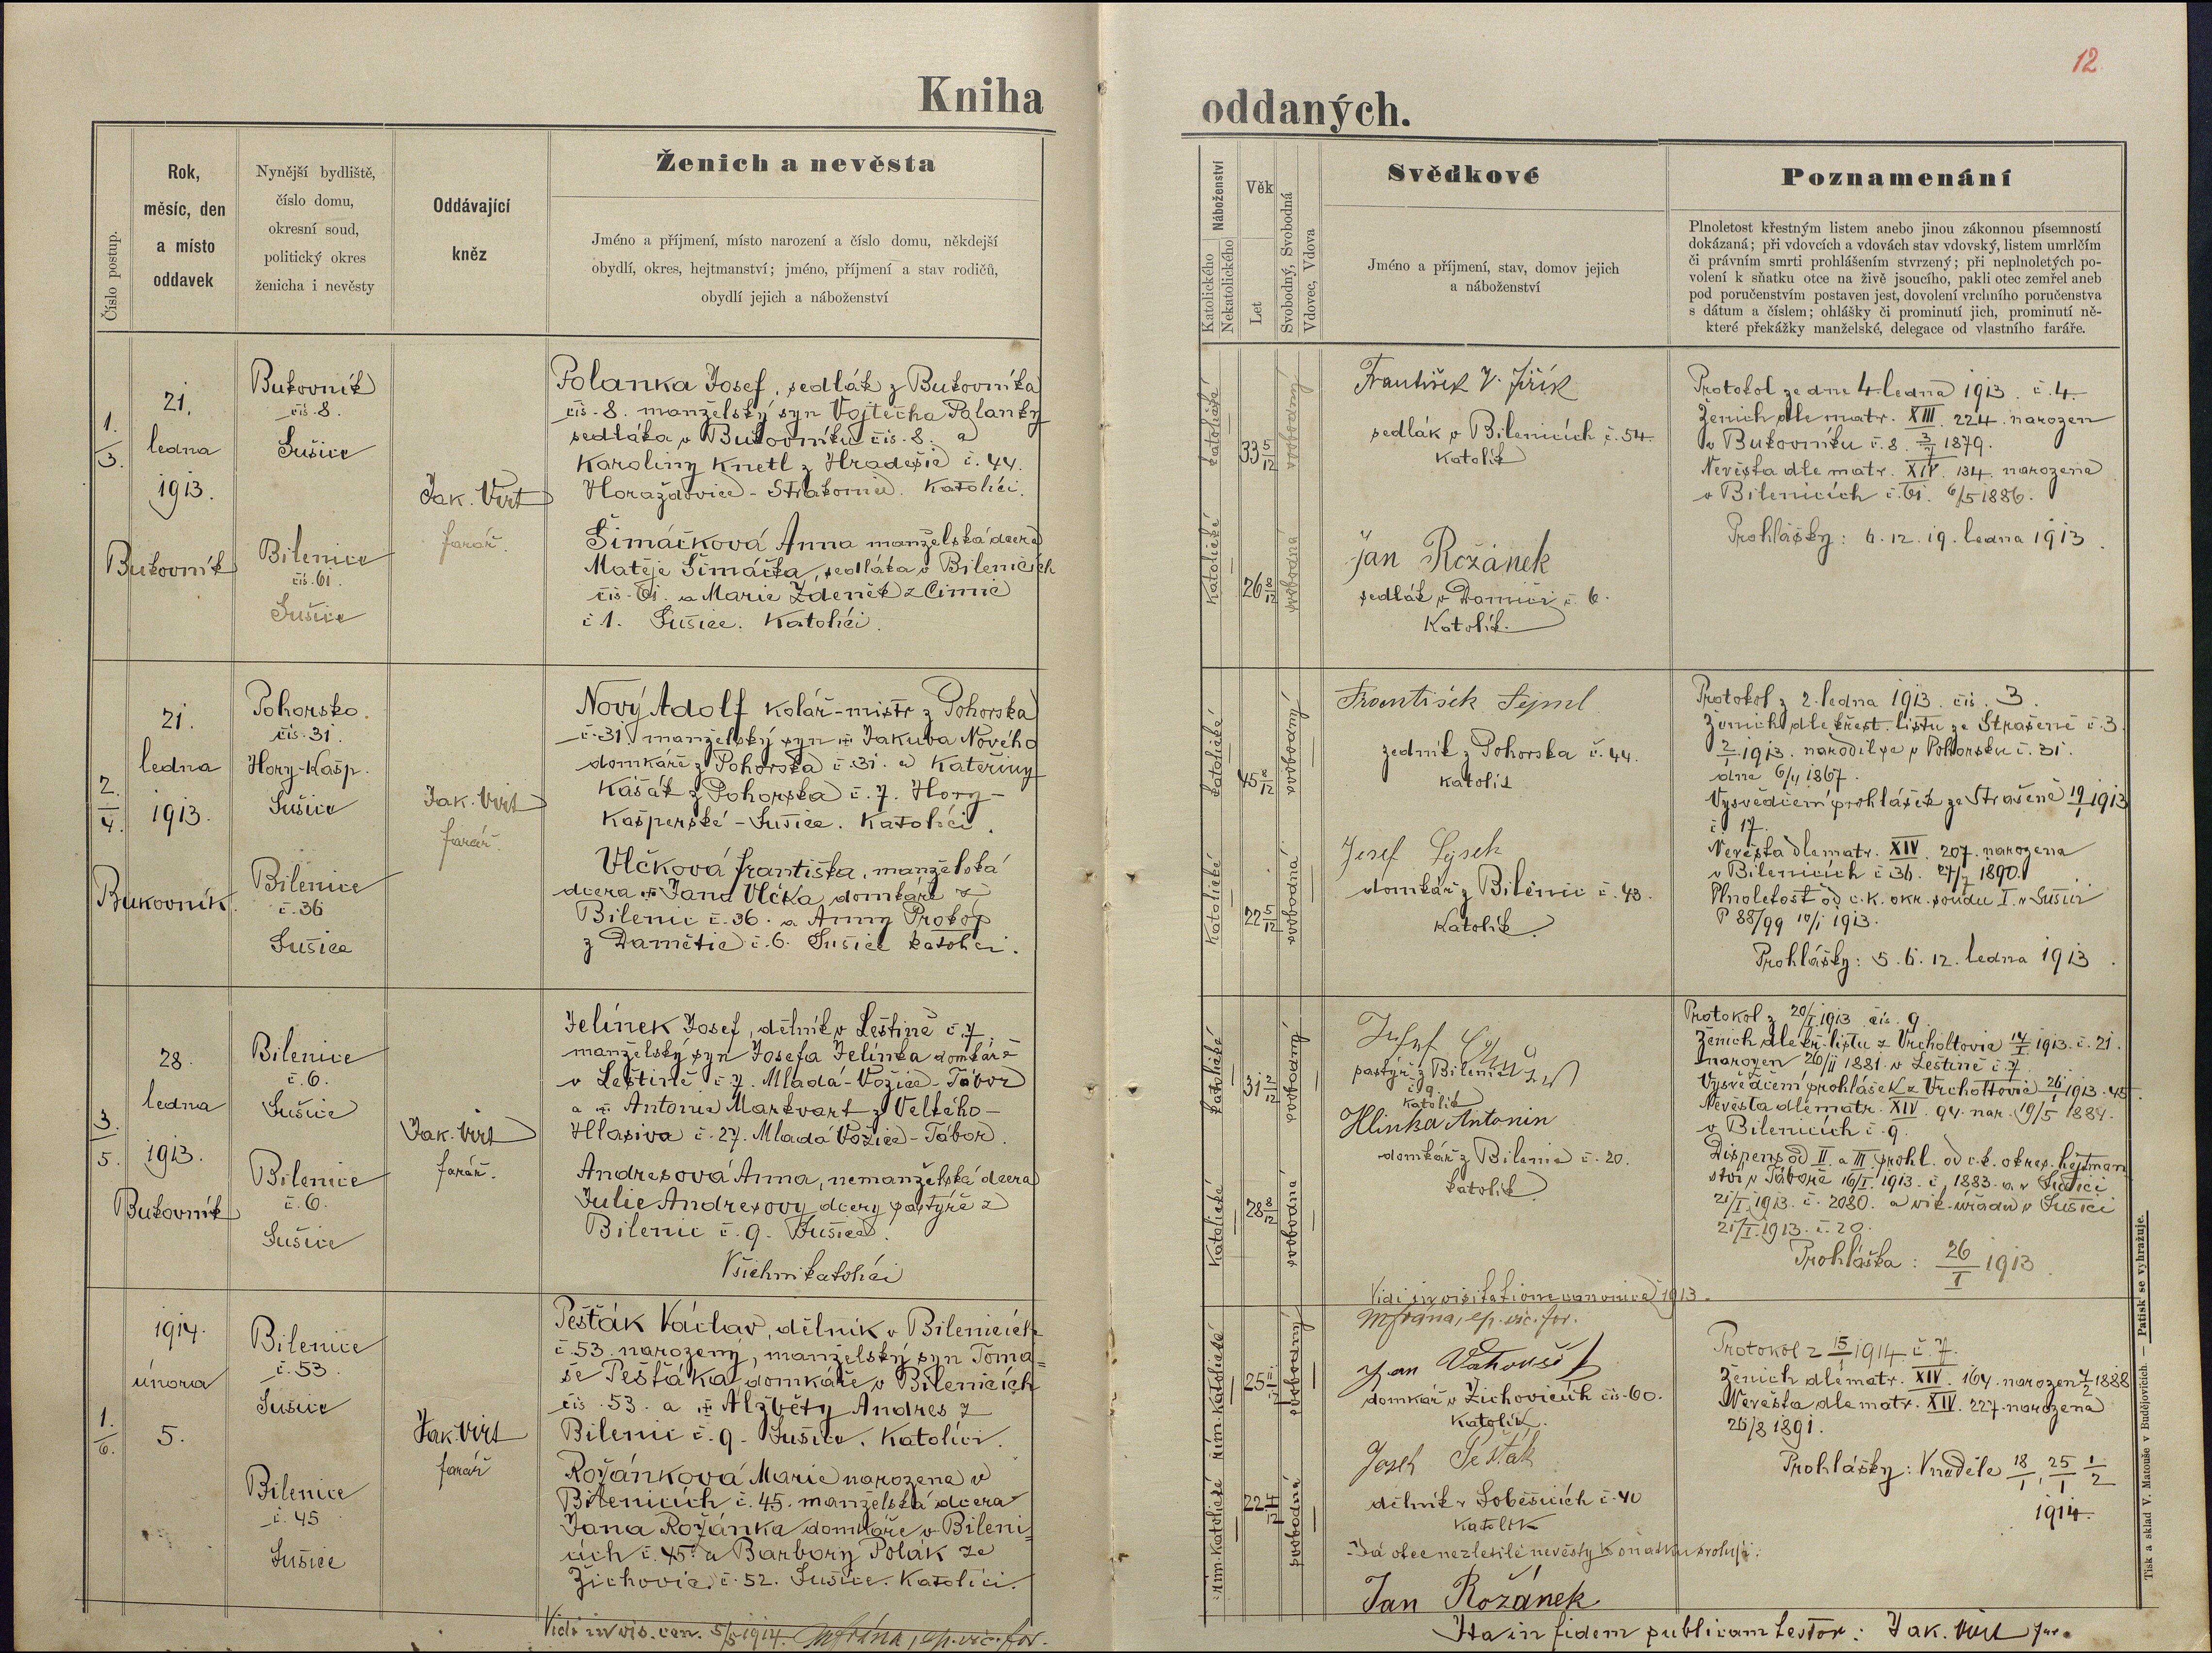 12
Kniha oddaných.
Číslo postup.
Rok,
měsíc, den
a místo
oddavek
Nynější bydliště,
číslo domu,
okresní soud,
politický okres
ženicha i nevěsty
Oddávající
kněz
Ženich a nevěsta
Jméno a příjmení, místo narození a číslo domu, někdejší
obydlí, okres, hejtmanství; jméno, příjmení a stav rodičů,
obydlí jejich a náboženství
Náboženství
Katolického
Nekatolického
Věk
Let
Svobodný, Svobodná
Vdovec, Vdova
Svědkové
Jméno a příjmení, stav, domov jejich
a náboženství
Poznamenání
Plnoletost křestným listem anebo jinou zákonnou písemností
dokázaná; při vdovcích a vdovách stav vdovský, listem umrlčím
či právním smrti prohlášením stvrzený; při neplnoletých po-
volení k sňatku otce na živě jsoucího, pakli otec zemřel aneb
pod poručenstvím postaven jest, dovolení vrchního poručenstva
s dátum a číslem; ohlášky či prominutí jich, prominutí ně-
které překážky manželské, delegace od vlastního faráře.
1.
3.
21.
ledna
1913.
Bukovník
Bukovník
čís. 8.
Sušice
Bilenice
čís. 61.
Sušice
Jak. Virt
farář.
Polanka Josef, sedlák z Bukovníka
čís. 8. manželský syn Vojtěcha Polanky
sedláka v Bukovníku čís. 8. a
Karoliny Knetl z Hradešic č. 44.
Horažďovice - Strakonice. Katolíci.
Šimáčková Anna manželská dcera
Matěje Šimáčka, sedláka v Bilenicích
čís. 61. a Marie Zdeněk z Čimic
č 1. Sušice. Katolíci.
katolické
33 5/12
svobodný
katolické
26 8/12
svobodná
František V. Jiřík
sedlák v Bilenicích č. 54.
Katolík
Jan Rožánek
sedlák v Damíči č. 6.
Katolík.
Protokol ze dne 4. ledna 1913. č. 4.
Ženich dle matr. XIII. 224. narozen
v Bukovníku č. 8. 3/7 1879.
Nevěsta dle matr. XIV. 134. narozena
v Bilenicích č. 61. 6/5 1886.
Prohlášky: 6. 12. 19. ledna 1913.
2.
4.
21.
ledna
1913.
Bukovník.
Pohorsko.
čís. 31.
Hory-Kašp.
Sušice
Bilenice
č. 36
Sušice
Jak. Virt
farář.
Nový Adolf kolář-mistr z Pohorska
č. 31. manželský syn Jakuba Nového
domkáře z Pohorska č. 31. a Kateřiny
Kášák z Pohorska č. 7. Hory-
Kašperské - Sušice. Katolíci.
Vlčková Františka, manželská
dcera Jana Vlčka domkáře z
Bilenic č. 36. a Anny Prokop
z Damětic č. 6. Sušice katolíci.
katolické
45 8/12
svobodný
katolické
22 5/12
svobodná
František Sejml
zedník z Pohorska č. 44.
katolík
Josef Lejsek
domkář z Bilenic č. 43.
Katolík.
Protokol z 2. ledna 1913. čís. 3.
Ženich dle křest. listu ze Strašeně č. 3
2/1 1913. narodil se v Pohorsku č. 31.
dne 6/4 1867.
Vysvědčení prohlášek ze Strašeně 19/1 1913
č. 17.
Nevěsta dle matr. XIV. 207. narozena
v Bilenicích č 36. 27/7 1890.
Plnoletost od c. k. okr. soudu I. v Sušici
P 88/99 10/1 1913.
Prohlášky: 5. 6. 12. ledna 1913.
3.
5.
28.
ledna
1913.
Bukovník
Bilenice
č. 6.
Sušice
Bilenice
č. 6.
Sušice
Jak. Virt
farář.
Jelínek Josef, dělník v Leštině č. 7,
manželský syn Josefa Jelínka domkáře
v Leštině č. 7. Mladá-Vožice-Tábor
a Antonie Markvart z Velkého-
Hlasiva č. 27. Mladá Vožice-Tábor.
Andresová Anna, nemanželská dcera
Julie Andresovy dcery pastýře z
Bilenic č. 9. Sušice.
Všichni katolíci
katolické
31 2/12
svobodný
Katolické
28 8/12
svobodná
pastýř z Bilenic
č 9.
katolík
Hlinka Antonin
domkář z Bilenic č. 20.
katolík.
Protokol z 20/I 1913. čís. 9.
Ženich dle kř. listu z Vrcholtovic 14/I 1913. č. 21.
narozen 26/11 1881. v Leštině č. 7.
Vysvědčení prohlášek z Vrcholtovic 26/I 1913. 45.
Nevěsta dle matr. XIV. 94. nar. 19/5 1884.
v Bilenicích č. 9.
Dispens od II. a III. prohl. od c. k. okres. hejtman
ství v Táboře 16/I. 1913. č. 1883. a v Sušici
21/I. 1913. č. 2080. a vik. úřadu v Sušici
21/I. 1913. č. 20.
Prohláška: 26/I 1913.
Vidi in visitatione canonica 1913.
Mfrána, ep. vic. for.
1.
6.
1914.
února
5.
Bilenice
č. 53.
Sušice
Bilenice
č. 45
Sušice
Jak. Virt
farář
Pešťák Václav, dělník v Bilenicích
č. 53. narozený, manželský syn Tomá-
še Pešťáka domkáře v Bilenicích
čís. 53. a Alžběty Andres z
Bilenic č. 9. Sušice. Katolíci.
Rožánková Marie narozena v
Bilenicích č. 45. manželská dcera
Jana Rožánka domkáře v Bileni-
cích č. 45. a Barbory Polák ze
Žichovic. č. 52. Sušice. Katolíci.
řím. katolické
25 11/12
svobodný
řím. katolické
22 4/12
svobodná
Jan
domkář v Žichovicích čís. 60.
Katolík.
Josef Pešťák
dělník v Soběšicích č. 40
Katolík
Já otec nezletilé nevěsty k sňatku svoluji:
Jan Rožánek
Protokol z 15/1 1914. č. 7.
Ženich dle matr. XIV. 164. narozen 4/2 1888
Nevěsta dle matr. XIV. 227. narozena
26/8 1891.
Prohlášky: V neděle 18/1, 25/1 1/2
1914.
Vidi in vis. can. 5/5 1914. Mfrána, ep. vic. for.
Ita in fidem publicam testor: Jak. Virt far.
Tisk a sklad V. Matouše v Budějovicích. — Patisk se vyhražuje.